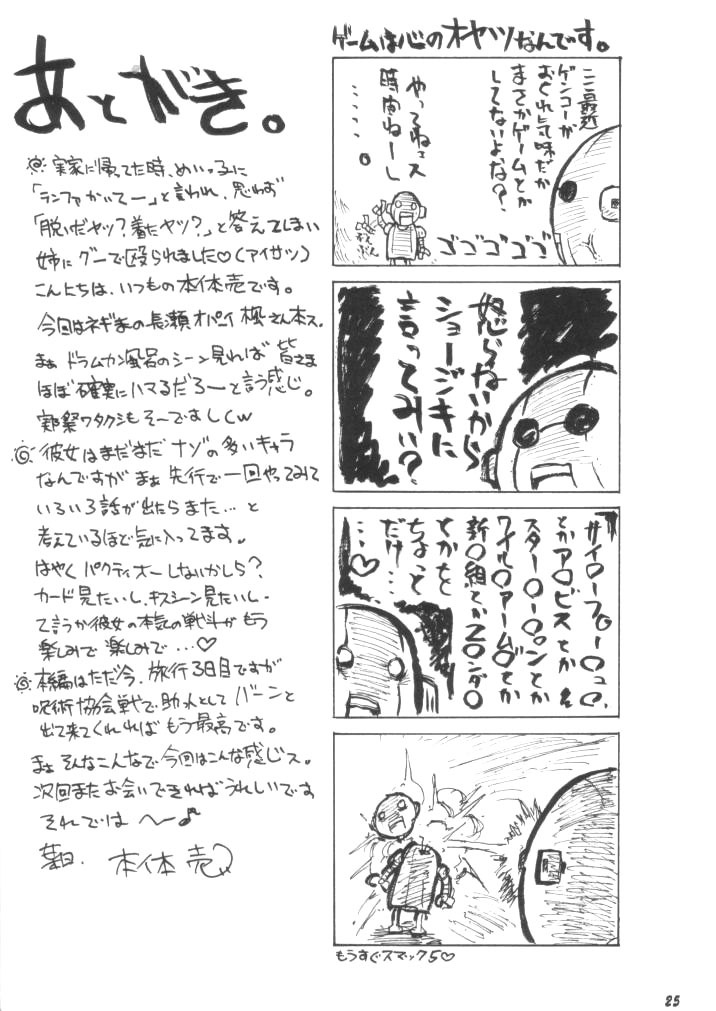 あとがき。
実家に帰ってた時、めいっ子に
「ランファかいてー」と言われ、思わず
「脱いだヤツ?着たヤツ?」と答えてしまい
姉にグーで殴られました♡(アイサツ)
こんにちは、いつもの本体売です。
今回はネギまの長瀬オパーイ楓さん本ス。
まぁドラムカン風呂のシーン見れば皆さま
ほぼ確実にハマるだろーと言う感じ。
実際ワタクシもそーですしw
彼女はまだまだナゾの多いキャラ
なんですがまぁ先行で一回やってみて
いろいろ話が出たらまた…と
考えているほど気に入ってます。
はやくパクティオーしないかしら?
カード見たいし、キスシーン見たいし
て言うか彼女の本気の戦斗がもう
楽しみで楽しみで…♡
本編はただ今、旅行3日目ですが
呪術協会戦で助っ人としてバーンと
出て来てくれればもう最高です。
まぁそんなこんなで今回はこんな感じス。
次回またお会いできればうれしいです
それでは〜♪
本体売
ゲームは心のオヤツなんです。
ここ最近
ゲンコーが
おくれ気味だが
まさかゲームとか
してないよな?
やってねェス
時間ねーし
……。
ゴゴゴゴゴ
怒らないから
ショージキに
言ってみい?
サイ○ーフォー○ュ○、
とかア○ビスとか
スター○ーョンとか
ワイル○アームズとか
新○組とかZ○ンダ○
とかを
ちょっと
だけ…
…♡
もうすぐスマック5♡
25